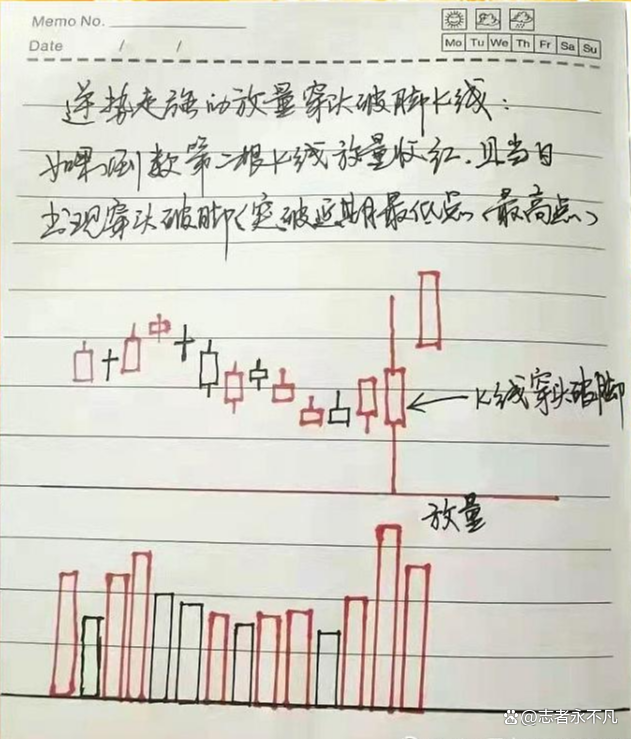 Memo No.
Date / /
Mo Tu We Th Fr Sa Su
逆势走强的放量穿头破脚K线:
如果倒数第二根K线放量收红,且当日
出现穿头破脚(突破近期最低点、最高点)
K线穿头破脚
放量
@志者永不凡